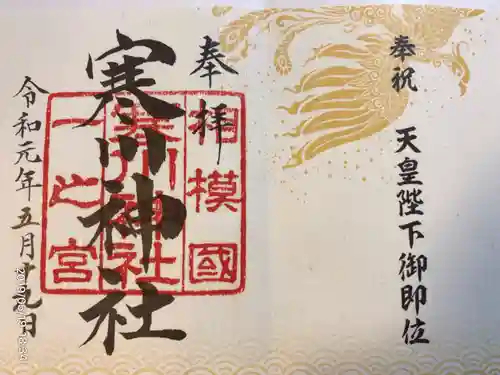 奉祝
天皇陛下御即位
奉拝
相模國
一之宮
寒川神社
寒川神社
令和元年五月廿九日